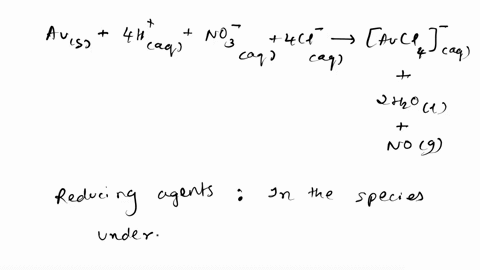 Au(s) + 4H⁺(aq) + NO₃⁻(aq) + 4Cl⁻(aq) ⟶ [AuCl₄]⁻(aq)
+
2H₂O(l)
+
NO(g)
Reducing agents : In the species
under.